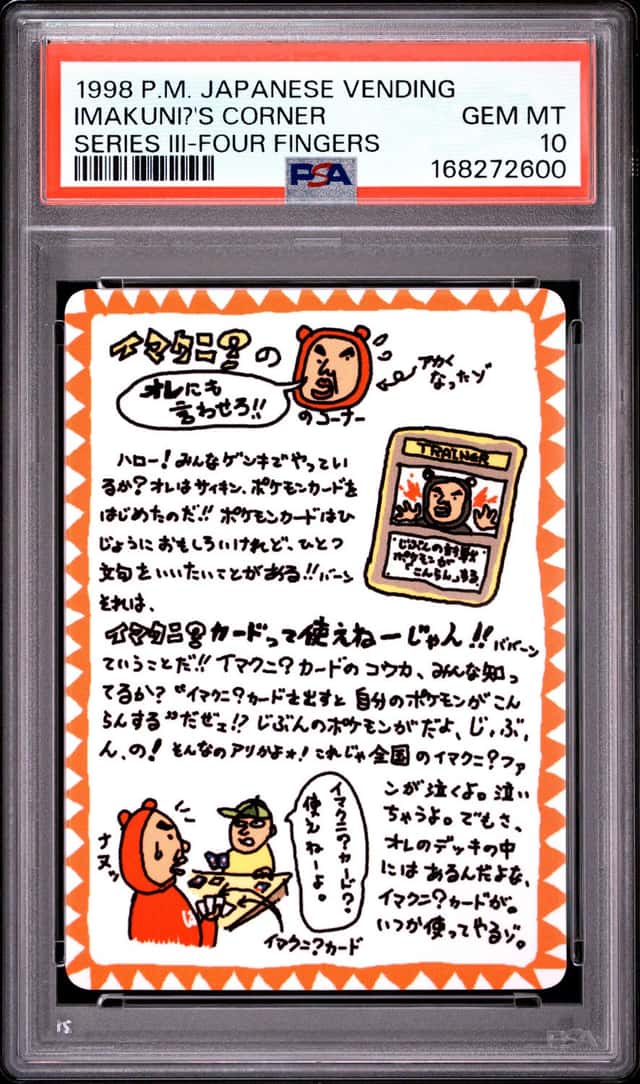 1998 P.M. JAPANESE VENDING
IMAKUNI?'S CORNER
GEM MT
SERIES III-FOUR FINGERS
10
PSA
168272600
イマクニ?の
オレにも
言わせろ!!
のコーナー
アカく
なったゾ
ハロー!みんなゲンキでやってい
るか?オレはサイキン、ポケモンカードを
はじめたのだ!!ポケモンカードはひ
じょうにおもしろいけれど、ひとつ
文句をいいたいことがある!!バーン
それは、
TRAINER
じぶんの
ポケモンが
「こんらん」する。
イマクニ?カードって使えねーじゃん!!ババーン
ていうことだ!!イマクニ?カードのコウカ、みんな知っ
てるか?“イマクニ?カードを出すと自分のポケモンがこん
らんする”だぜェ!?じぶんのポケモンがだよ、じ,ぶ,
ん,の!そんなのアリかよ★!これじゃ全国のイマクニ?ファ
ンが泣くよ。泣い
ちゃうよ。でもさ、
オレのデッキの中
にはあるんだよな、
イマクニ?カードが。
いつか使ってやるゾ。
イマクニ?カード?。
使えねーよ。
ナヌッ
イマクニ?カード
PSA